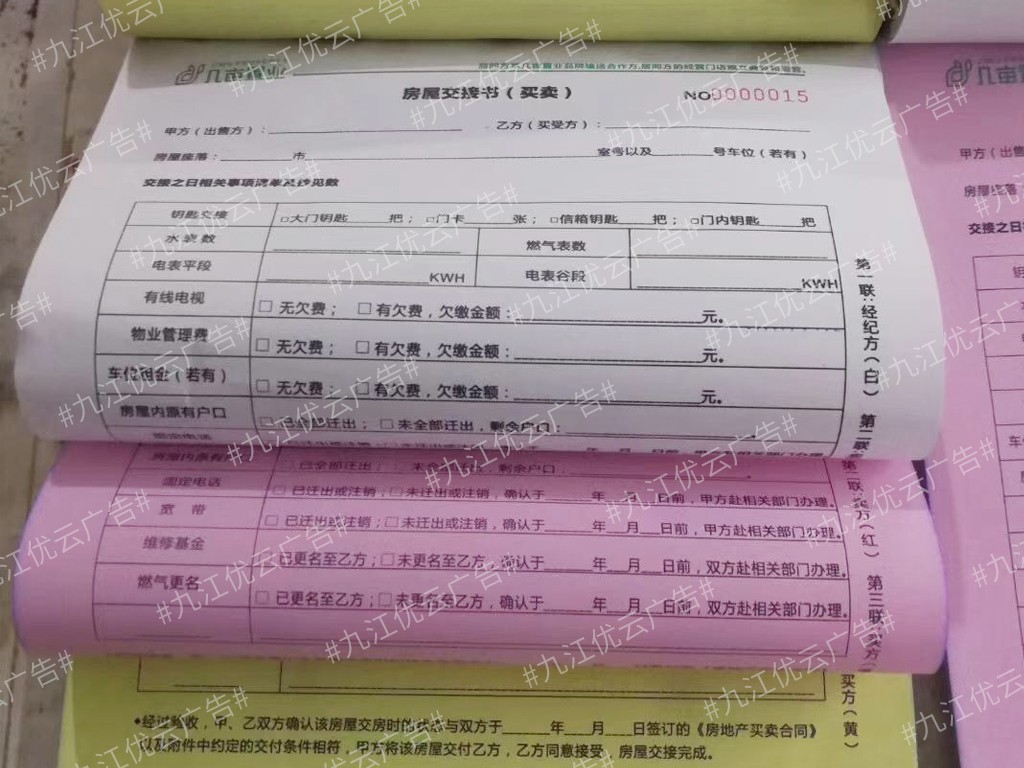 房屋交接书（买卖）
NO 0000015
甲方（出售方）：
乙方（买受方）：
房屋座落：______市______室号以及______号车位（若有）
交接之日相关事项清单及抄见数
钥匙交接 □大门钥匙____把；□门卡____张；□信箱钥匙____把；□门内钥匙____把
水表数 燃气表数
电表平段 ______KWH 电表谷段 ______KWH
有线电视 □ 无欠费； □ 有欠费，欠缴金额：______元。
物业管理费 □ 无欠费； □ 有欠费，欠缴金额：______元。
车位租金（若有） □ 无欠费； □ 有欠费，欠缴金额：______元。
房屋内原有户口 □ 已全部迁出； □ 未全部迁出，剩余户口：______
第一联：经纪方（白） 第二联
□ 已全部迁出； □ 未全部迁出，剩余户口：
固定电话 □ 已迁出或注销；□ 未迁出或注销，确认于____年__月__日前，甲方赴相关部门办理。
宽 带 □ 已迁出或注销；□ 未迁出或注销，确认于____年__月__日前，甲方赴相关部门办理。
维修基金 □ 已更名至乙方；□ 未更名至乙方，确认于____年__月__日前，双方赴相关部门办理。
燃气更名 □ 已更名至乙方；□ 未更名至乙方，确认于____年__月__日前，双方赴相关部门办理。
方（红） 第三联
买方（黄）
*经过验收，甲、乙双方确认该房屋交房时的状态与双方于____年__月__日签订的《房地产买卖合同》
以及附件中约定的交付条件相符，甲方将该房屋交付乙方，乙方同意接受，房屋交接完成。
甲方（出售
房屋座落：
交接之日
#九江优云广告#